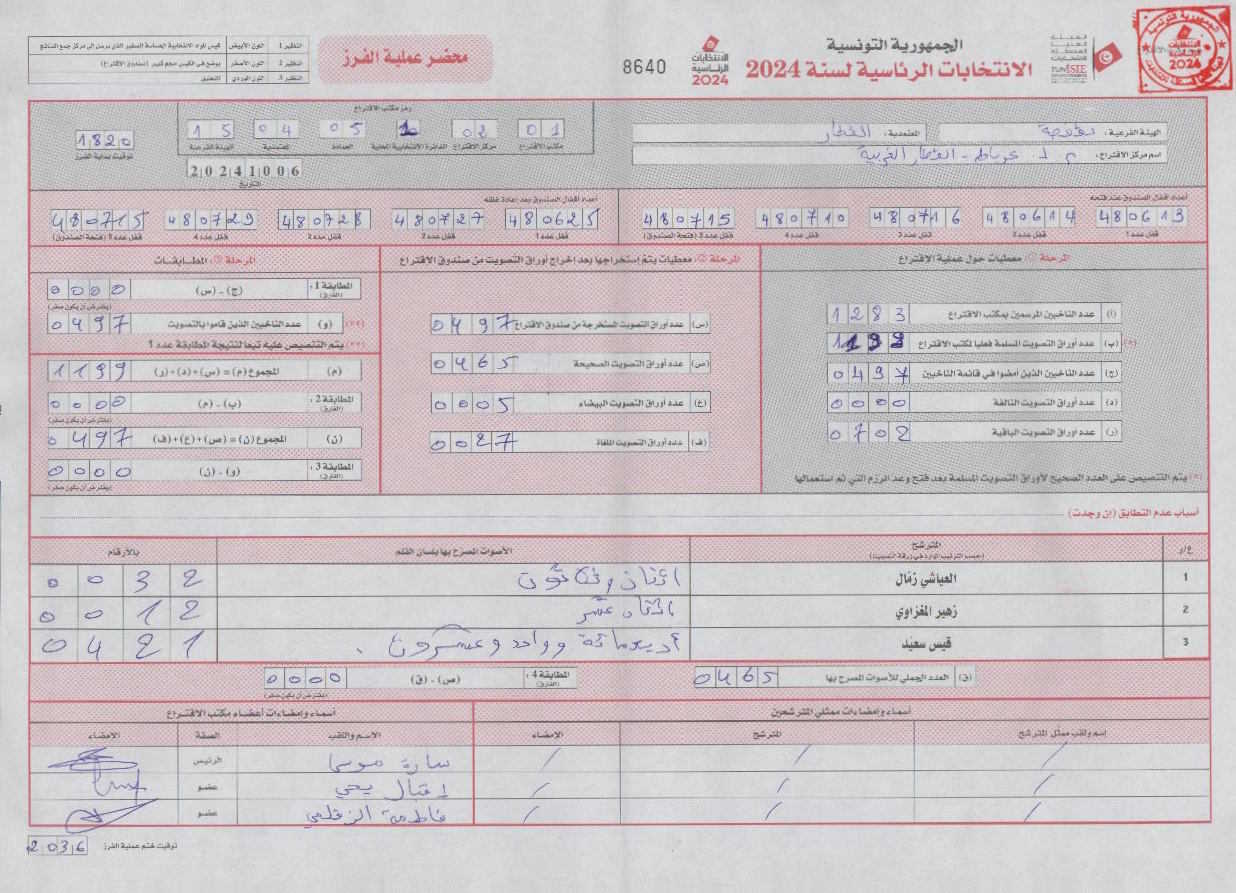 الجمهورية التونسية
الانتخابات الرئاسية لسنة 2024
الانتخابات الرئاسية 2024
8640
محضر عملية الفرز
النظير 1 اللون الأبيض
النظير 2 اللون الأصفر يوضع في الكيس حجم كبير (صندوق الاقتراع)
النظير 3 اللون الوردي التعليق
الهيئة الفرعية: قفصة المعتمدية: القطار
اسم مركز الاقتراع: م إ. عرباطة - القطار الغربية
رمز مكتب الاقتراع
01 02 1 05 04 15
مكتب الاقتراع مركز الاقتراع الدائرة الانتخابية المحلية العمادة المعتمدية الهيئة الفرعية
20241006
التاريخ
1820
توقيت بداية الفرز
أعداد أقفال الصندوق عند فتحه
480613 480614 480716 480710 480715
قفل عدد 1 قفل عدد 2 قفل عدد 3 قفل عدد 4 قفل عدد 5 (فتحة الصندوق)
أعداد أقفال الصندوق بعد إعادة غلقه
480625 480727 480728 480729 480715
قفل عدد 1 قفل عدد 2 قفل عدد 3 قفل عدد 4 قفل عدد 5 (فتحة الصندوق)
المرحلة 1: معطيات حول عملية الاقتراع
(ا) عدد الناخبين المرسمين بمكتب الاقتراع 1283
(*) (ب) عدد أوراق التصويت المسلمة فعليا لمكتب الاقتراع 1199
(ج) عدد الناخبين الذين أمضوا في قائمة الناخبين 0497
(د) عدد أوراق التصويت التالفة 0000
(ر) عدد أوراق التصويت الباقية 0702
(*) يتم التنصيص على العدد الصحيح لأوراق التصويت المسلمة بعد فتح وعد الرزم التي تم استعمالها
المرحلة 2: معطيات يتم إستخراجها بعد إخراج أوراق التصويت من صندوق الاقتراع
(س) عدد أوراق التصويت المستخرجة من صندوق الاقتراع 0497
(ص) عدد أوراق التصويت الصحيحة 0465
(ع) عدد أوراق التصويت البيضاء 0005
(ف) عدد أوراق التصويت الملغاة 0027
المرحلة 3: المطابقات
المطابقة 1: (الفارق) (ج) - (س) 0000
(يفترض أن يكون صفر)
(**) (و) عدد الناخبين الذين قاموا بالتصويت 0497
(**) يتم التنصيص عليه تبعا لنتيجة المطابقة عدد 1
(م) المجموع (م) = (س)+(د)+(ر) 1199
المطابقة 2: (الفارق) (ب) - (م) 0000
(يفترض أن يكون صفر)
(ن) المجموع (ن) = (ص)+(ع)+(ف) 0497
المطابقة 3: (الفارق) (و) - (ن) 0000
(يفترض أن يكون صفر)
أسباب عدم التطابق (إن وجدت)
ع/ر المترشح الأصوات المصرح بها بلسان القلم بالأرقام
(حسب الترتيب الوارد في ورقة التصويت)
1 العياشي زمّال اثنان وثلاثون 0032
2 زهير المغزاوي اثنا عشر 0012
3 قيس سعيّد أربعمائة وواحد وعشرون . 0421
(ق) العدد الجملي للأصوات المصرح بها 0465
المطابقة 4: (الفارق) (ص) - (ق) 0000
(يفترض أن يكون صفر)
أسماء وإمضاءات ممثلي المترشحين
إسم ولقب ممثل المترشح المترشح الإمضاء
/ / /
/ / /
/ / /
أسماء وإمضاءات أعضاء مكتب الاقتراع
الاسم واللقب الصفة الإمضاء
سارة موسى الرئيس
إقبال يحي عضو
فاطمة الزقلمي عضو
توقيت ختم عملية الفرز 2036